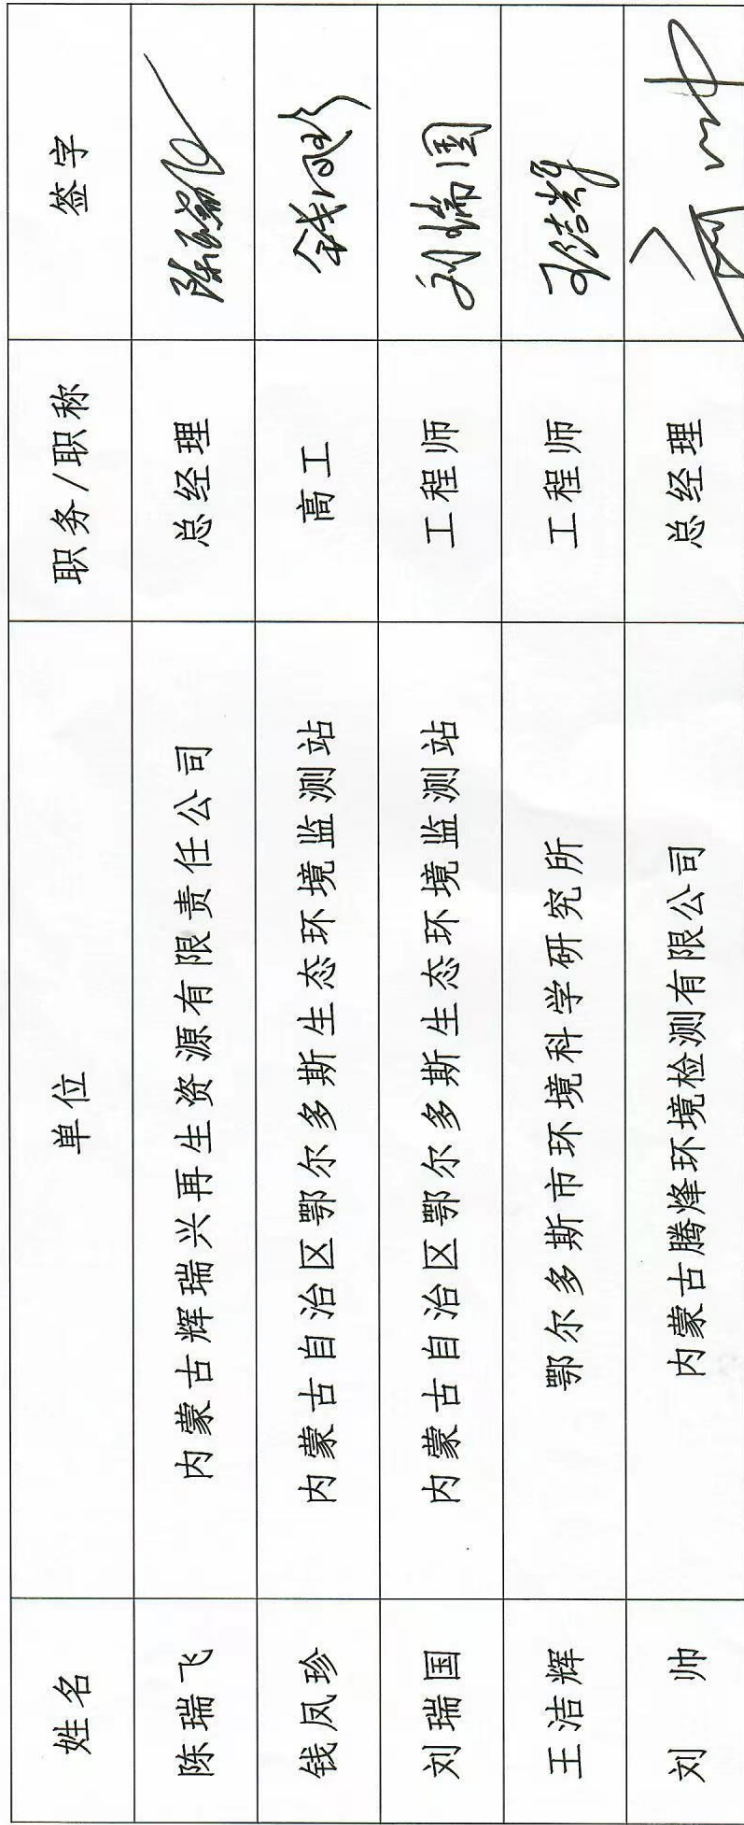 姓名 单位 职务/职称 签字
陈瑞飞 内蒙古辉瑞兴再生资源有限责任公司 总经理 陈瑞飞
钱凤珍 内蒙古自治区鄂尔多斯生态环境监测站 高工 钱凤珍
刘瑞国 内蒙古自治区鄂尔多斯生态环境监测站 工程师 刘瑞国
王洁辉 鄂尔多斯市环境科学研究所 工程师 王洁辉
刘 帅 内蒙古腾烽环境检测有限公司 总经理